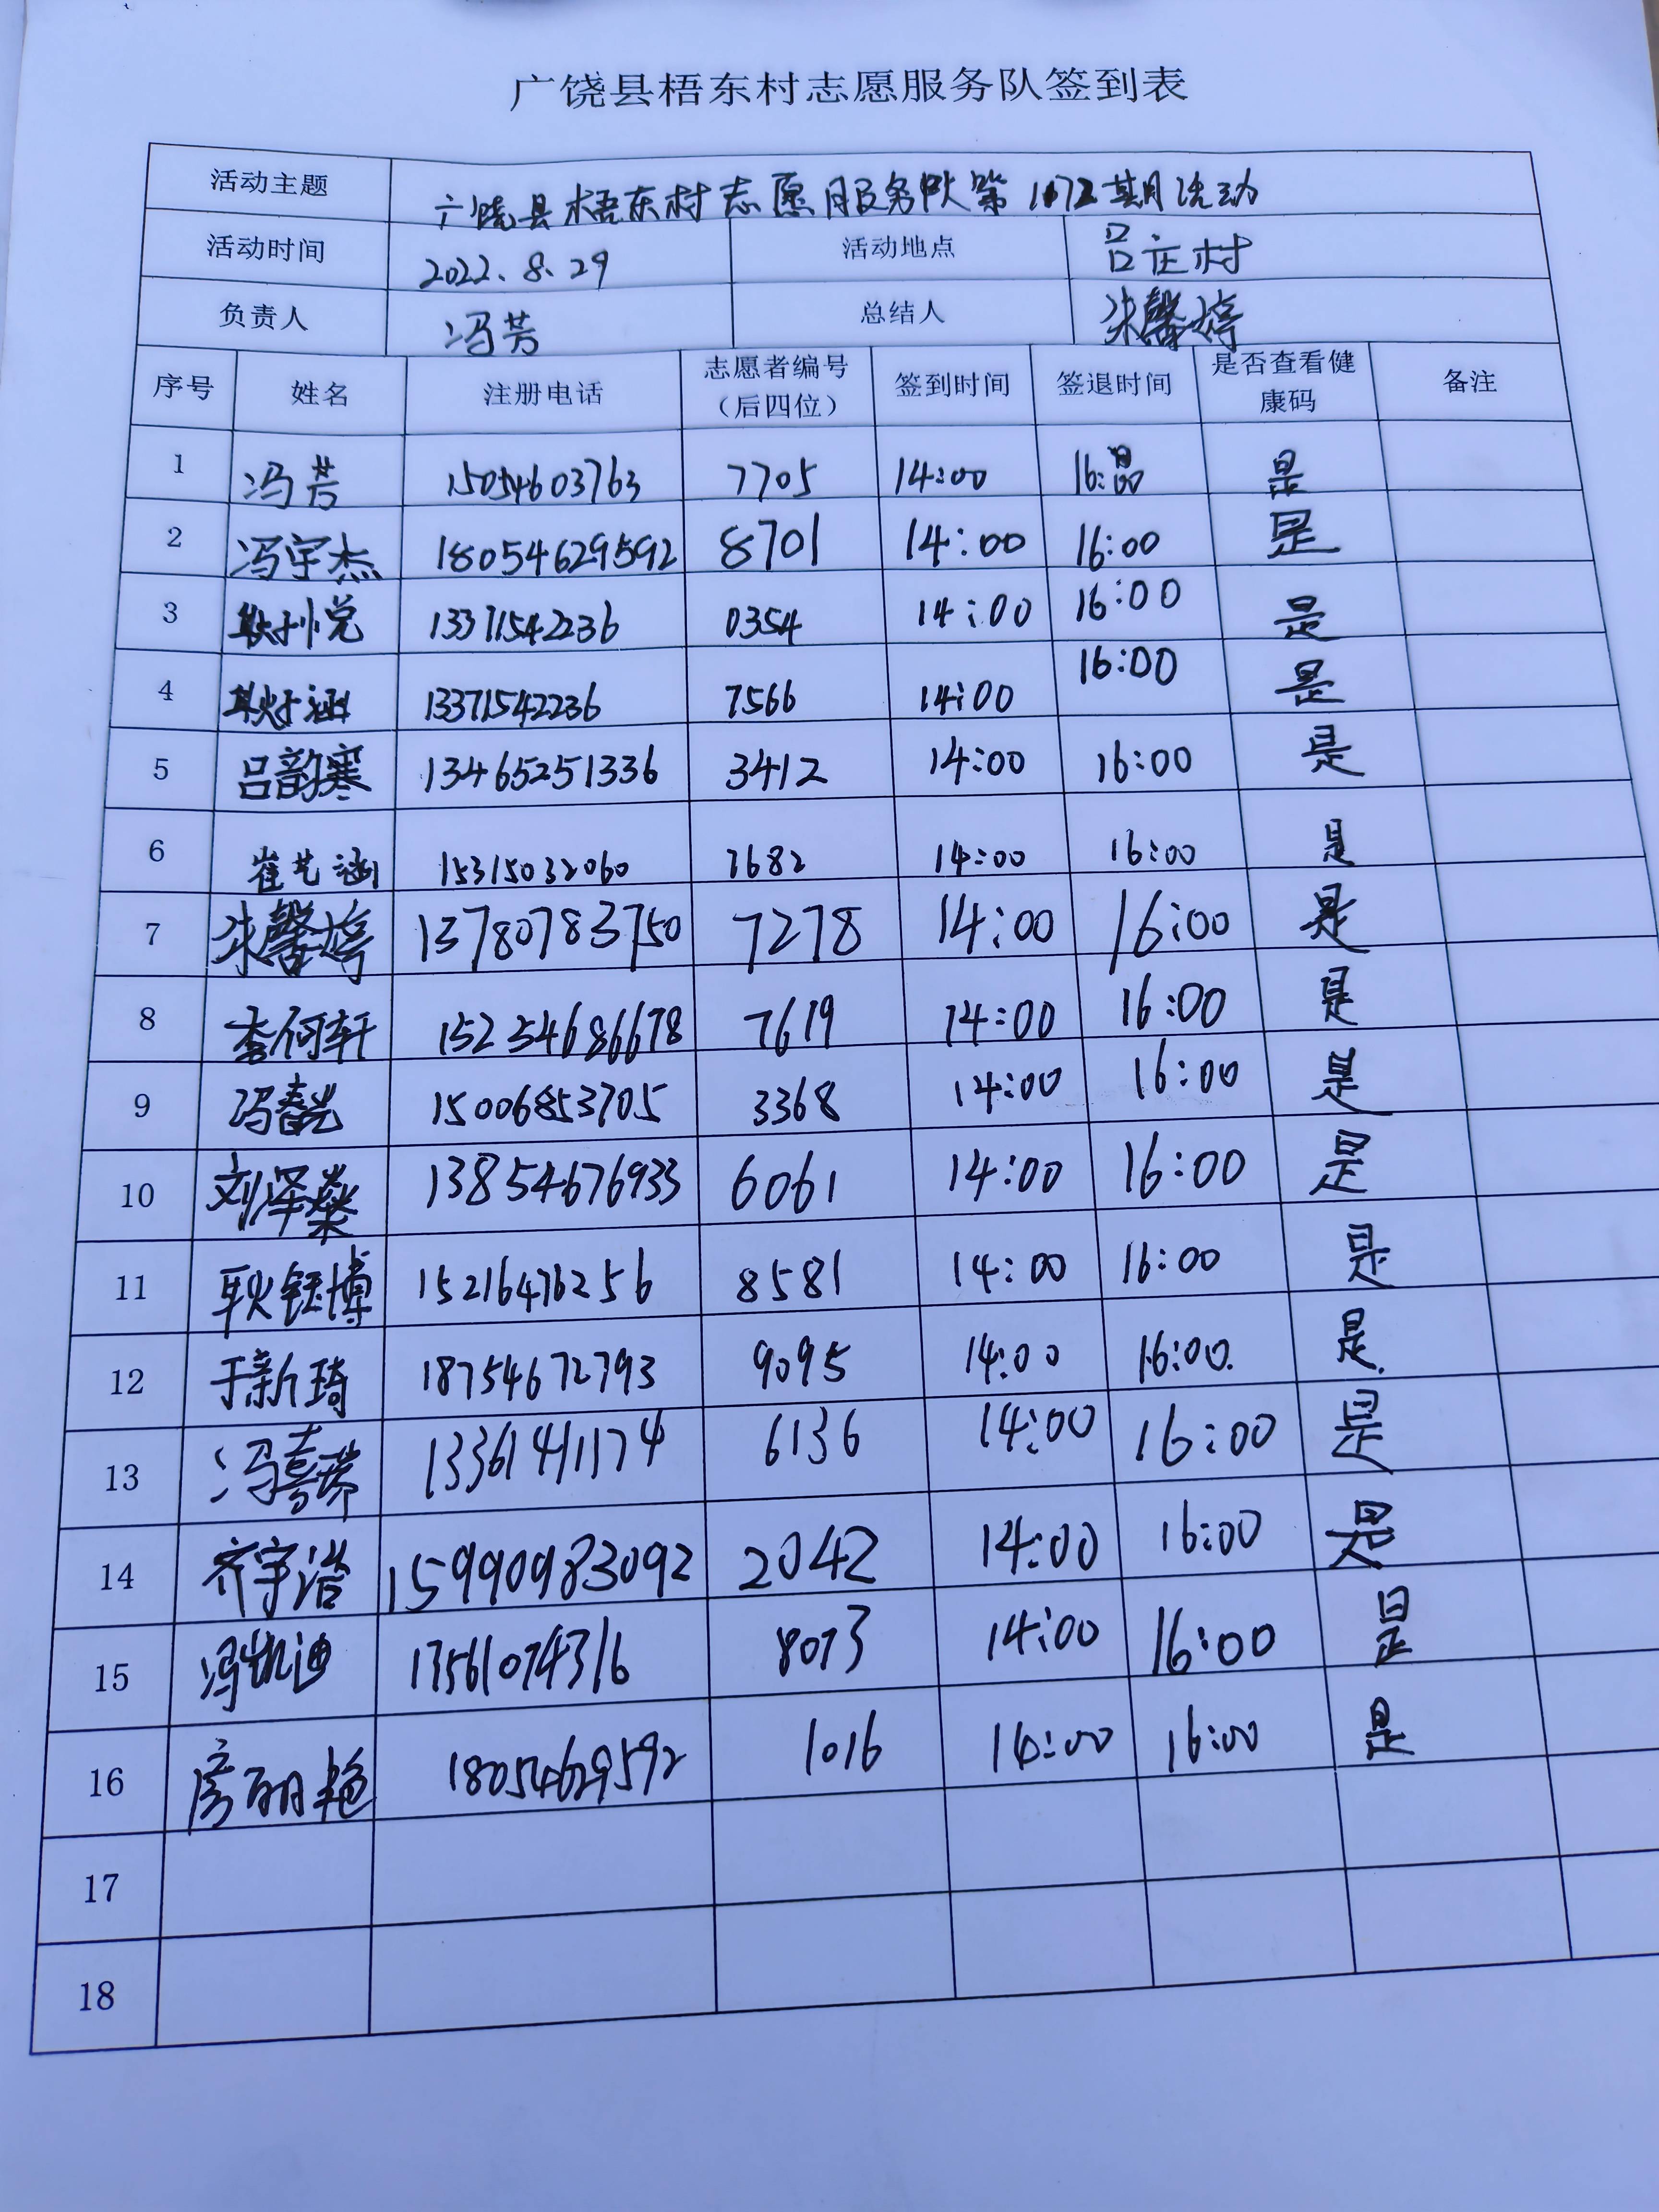 广饶县梧东村志愿服务队签到表
活动主题 广饶县梧东村志愿服务队第1072期活动
活动时间 2022.8.29 活动地点 吕庄村
负责人 冯芳 总结人 朱馨婷
序号 姓名 注册电话 志愿者编号（后四位） 签到时间 签退时间 是否查看健康码 备注
1 冯芳 15054603763 7705 14:00 16:00 是
2 冯宇杰 18054629592 8701 14:00 16:00 是
3 13371542236 0354 14:00 16:00 是
4 13371542236 7566 14:00 16:00 是
5 吕韵寒 13465251336 3412 14:00 16:00 是
6 崔艺涵 15315032060 7682 14:00 16:00 是
7 朱馨婷 13780783750 7278 14:00 16:00 是
8 李何轩 15254686678 7619 14:00 16:00 是
9 冯 15006853705 3368 14:00 16:00 是
10 刘泽燊 13854676933 6061 14:00 16:00 是
11 耿钰博 15216476256 8581 14:00 16:00 是
12 于新琦 18754672793 9095 14:00 16:00 是
13 冯喜瑞 13361411174 6136 14:00 16:00 是
14 齐宇浩 15990983092 2042 14:00 16:00 是
15 冯凯迪 17561074316 8073 14:00 16:00 是
16 房丽艳 18054629592 1016 14:00 16:00 是
17
18